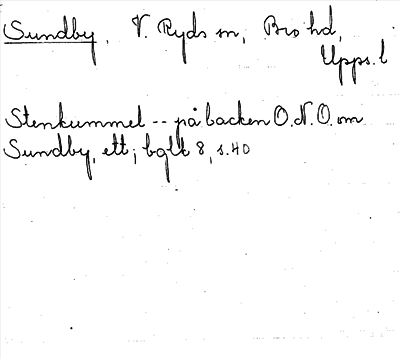 Sundby, V. Ryds sn, Bro hd,
Upps. l
Stenkummel -- på backen O.N.O. om
Sundby, ett; bglt 8, s. 40